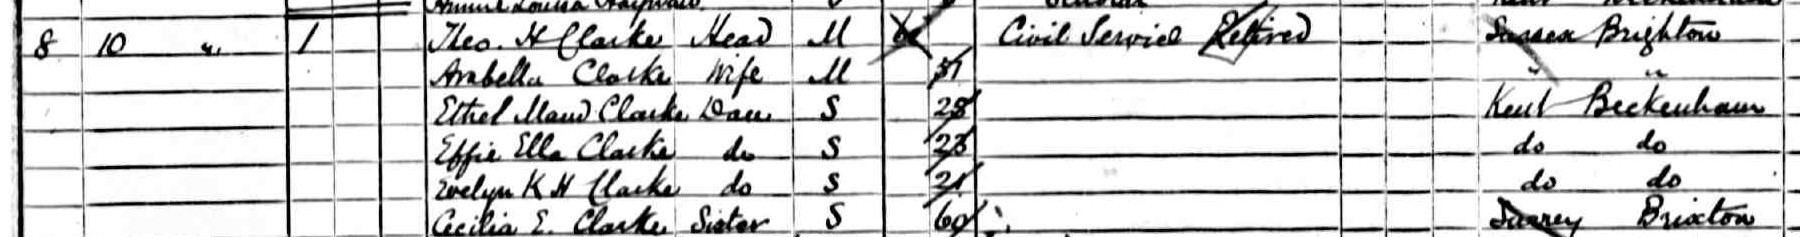 Louisa
8 10 " 1 Theo. H Clarke Head M Civil Service Retired Sussex Brighton
Arabella Clarke Wife M 57 " "
Ethel Maud Clarke Dau S 28 Kent Beckenham
Effie Ella Clarke do S 23 do do
Evelyn K H Clarke do S 21 do do
Cecilia E. Clarke Sister S 60 Surrey Brixton